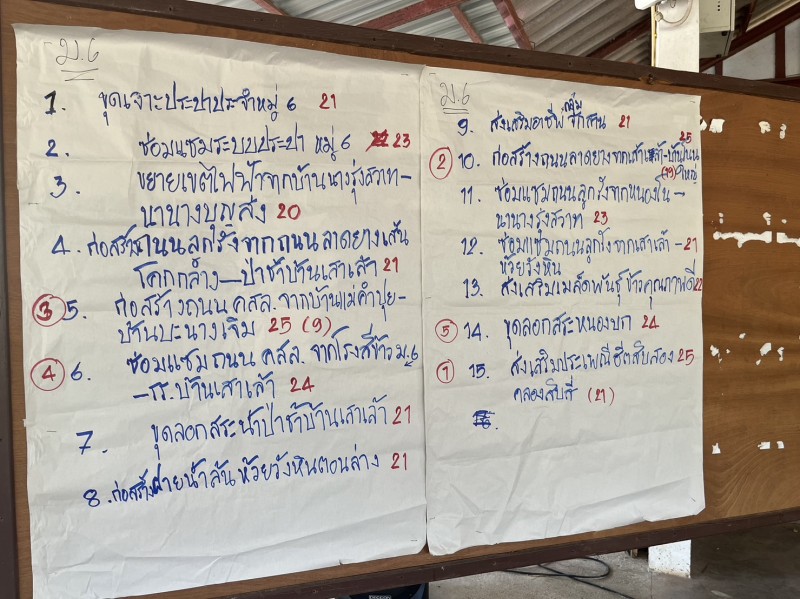 ม.6
1. ขุดเจาะประปาประจำหมู่ 6 21
2. ซ่อมแซมระบบประปา หมู่ 6 23
3. ขยายเขตไฟฟ้าจากบ้านนางรุ่งสวาท-
นานางบุญส่ง 20
4. ก่อสร้างถนนลูกรังจากถนนลาดยางเส้น
โคกกล้าง-ป่าช้าบ้านเสาเล้า 21
③ 5. ก่อสร้างถนน คสล. จากบ้านแม่คำปุย-
บ้านบะนางเจิม 25 (9)
④ 6. ซ่อมแซมถนน คสล. จากโรงสีข้าว ม.6
-รร.บ้านเสาเล้า 24
7. ขุดลอกสระน้ำป่าช้าบ้านเสาเล้า 21
8. ก่อสร้างฝายน้ำล้นห้วยวังหินตอนล่าง 21
ม.6
9. ส่งเสริมอาชีพ กลุ่มจักสาน 21
② 10. ก่อสร้างถนนลาดยางจากเสาเล้า-บ้านโนนใหญ่ 25 (19)
11. ซ่อมแซมถนนลูกรังจากหนองโน-
นานางรุ่งสวาท 23
12. ซ่อมแซมถนนลูกรังจากเสาเล้า - 21
ห้วยวังหิน
13. ส่งเสริมเมล็ดพันธุ์ข้าวคุณภาพดี 22
⑤ 14. ขุดลอกสระหนองบก 24
① 15. ส่งเสริมประเพณีฮีตสิบสอง 25
คลองสิบสี่ (21)